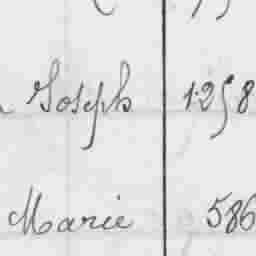 Joseph 1258
Marie 586